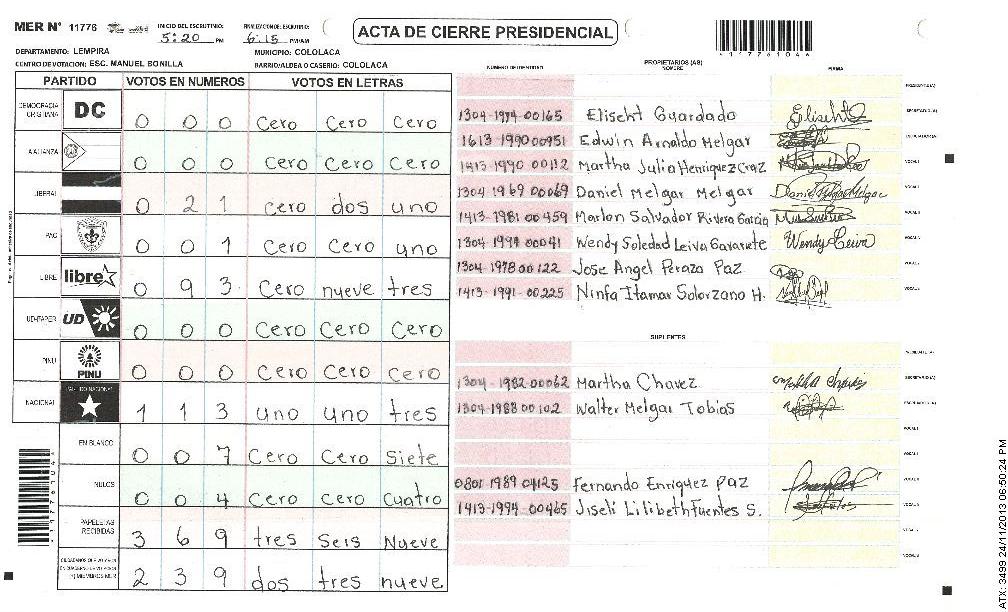 MER N° 11776
INICIO DEL ESCRUTINIO: 5:20 PM
FINALIZACION DE ESCRUTINIO: 6:15 PM/AM
ACTA DE CIERRE PRESIDENCIAL
117761044
DEPARTAMENTO: LEMPIRA
MUNICIPIO: COLOLACA
CENTRO DE VOTACION: ESC. MANUEL BONILLA
BARRIO/ALDEA O CASERIO: COLOLACA
PARTIDO VOTOS EN NUMEROS VOTOS EN LETRAS
DEMOCRACIA CRISTIANA DC 0 0 0 Cero Cero Cero
ALIANZA 0 0 0 Cero Cero Cero
LIBERAL 0 2 1 Cero dos uno
PAC 0 0 1 Cero Cero uno
LIBRE libre 0 9 3 Cero nueve tres
UD-FAPER UD 0 0 0 Cero Cero Cero
PINU PINU 0 0 0 Cero Cero Cero
NACIONAL PARTIDO NACIONAL 1 1 3 uno uno tres
EN BLANCO 0 0 7 Cero Cero Siete
NULOS 0 0 4 Cero Cero Cuatro
PAPELETAS RECIBIDAS 3 6 9 tres Seis Nueve
2 3 9 dos tres nueve
NUMERO DE IDENTIDAD PROPIETARIOS (AS) NOMBRE FIRMA
PRESIDENTE(A)
1304-1974-00165 Elischt Guardado SECRETARIO(A)
1613-1990-00951 Edwin Arnaldo Melgar ESCRUTADOR(A)
1413-1990 00112 Martha Julia Henriquez Cruz VOCAL I
1304 1969 00069 Daniel Melgar Melgar Daniel Melgar Melgar
1413-1981-00459 Marlon Salvador Rivera Garcia
1304-1994-00041 Wendy Soledad Leiva Gavarrete Wendy Leiva
1304-1978 00122 Jose Angel Perazo Paz
1413-1991-00225 Ninfa Itamar Solorzano H.
SUPLENTES
PRESIDENTE(A)
1304-1982-00062 Martha Chavez Martha Chavez SECRETARIO(A)
1304-1988 00102 Walter Melgar Tobias ESCRUTADOR(A)
VOCAL I
0801 1989 04125 Fernando Enriquez Paz
1413-1994-00465 Jiseli Lilibeth Fuentes S.
ATX: 3499 24/11/2013 06:50:24 PM